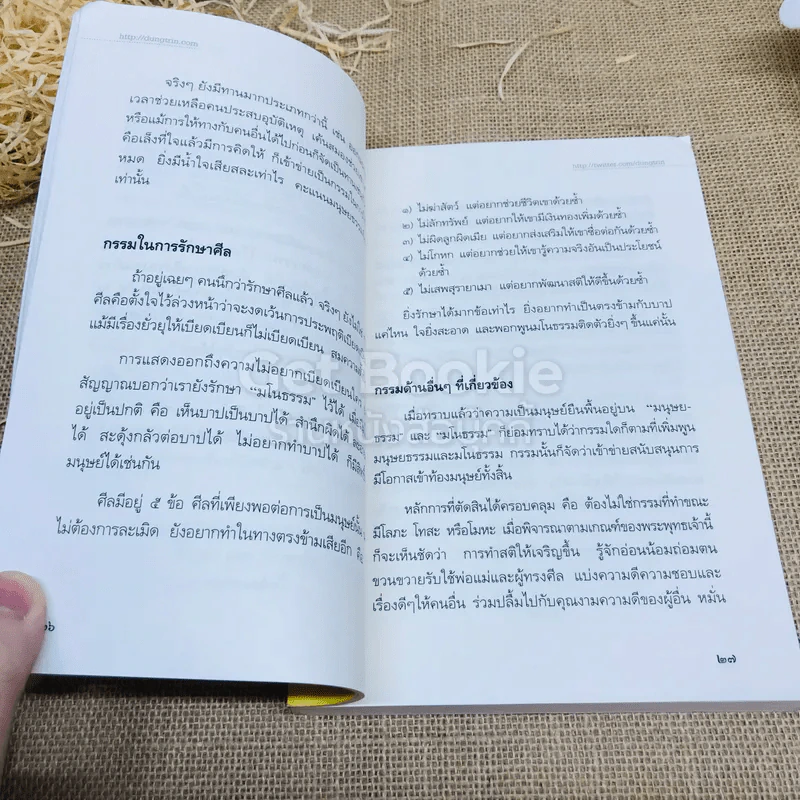 http://dungtrin.com
จริงๆ ยังมีทานมากประเภทกว่านี้ เช่น
เวลาช่วยเหลือคนประสบอุบัติเหตุ เค้นสมองช่วย
หรือแม้การให้ทางกับคนอื่นได้ไปก่อนก็จัดเป็นทาน
คือเล็งที่ใจแล้วมีการคิดให้ ก็เข้าข่ายเป็นกรรมใน
หมด ยิ่งมีน้ำใจเสียสละเท่าไร คะแนนมนุษยธรรม
เท่านั้น
กรรมในการรักษาศีล
ถ้าอยู่เฉยๆ คนนึกว่ารักษาศีลแล้ว จริงๆ ยังไม่
ศีลคือตั้งใจไว้ล่วงหน้าว่าจะงดเว้นการประพฤติเบียด
แม้มีเรื่องยั่วยุให้เบียดเบียนก็ไม่เบียดเบียน สมความ
การแสดงออกถึงความไม่อยากเบียดเบียนใคร
สัญญาณบอกว่าเรายังรักษา “มโนธรรม” ไว้ได้
อยู่เป็นปกติ คือ เห็นบาปเป็นบาปได้ สำนึกผิดได้
ได้ สะดุ้งกลัวต่อบาปได้ ไม่อยากทำบาปได้ ก็มี
มนุษย์ได้เช่นกัน
ศีลมีอยู่ ๕ ข้อ ศีลที่เพียงพอต่อการเป็นมนุษย์
ไม่ต้องการละเมิด ยังอยากทำในทางตรงข้ามเสียอีก คือ
๒๖
๑) ไม่ฆ่าสัตว์ แต่อยากช่วยชีวิตเขาด้วยซ้ำ
๒) ไม่ลักทรัพย์ แต่อยากให้เขามีเงินทองเพิ่มด้วยซ้ำ
๓) ไม่ผิดลูกผิดเมีย แต่อยากส่งเสริมให้เขาซื่อต่อกันด้วยซ้ำ
๔) ไม่โกหก แต่อยากช่วยให้เขารู้ความจริงอันเป็นประโยชน์
ด้วยซ้ำ
๕) ไม่เสพสุรายาเมา แต่อยากพัฒนาสติให้ดีขึ้นด้วยซ้ำ
ยิ่งรักษาได้มากข้อเท่าไร ยิ่งอยากทำเป็นตรงข้ามกับบาป
แค่ไหน ใจยิ่งสะอาด และพอกพูนมโนธรรมติดตัวยิ่งๆ ขึ้นแค่นั้น
Get Bookie
ร้านหนังสือมือสอง
กรรมด้านอื่นๆ ที่เกี่ยวข้อง
เมื่อทราบแล้วว่าความเป็นมนุษย์ยืนพื้นอยู่บน “มนุษย-
ธรรม” และ “มโนธรรม” ก็ย่อมทราบได้ว่ากรรมใดก็ตามที่เพิ่มพูน
มนุษยธรรมและมโนธรรม กรรมนั้นก็จัดว่าเข้าข่ายสนับสนุนการ
มีโอกาสเข้าท้องมนุษย์ทั้งสิ้น
หลักการที่ตัดสินได้ครอบคลุม คือ ต้องไม่ใช่กรรมที่ทำขณะ
มีโลภะ โทสะ หรือโมหะ เมื่อพิจารณาตามเกณฑ์ของพระพุทธเจ้านี้
ก็จะเห็นชัดว่า การทำสติให้เจริญขึ้น รู้จักอ่อนน้อมถ่อมตน
ขวนขวายรับใช้พ่อแม่และผู้ทรงศีล แบ่งความดีความชอบและ
เรื่องดีๆ ให้คนอื่น ร่วมปลื้มไปกับคุณงามความดีของผู้อื่น หมั่น
๒๗